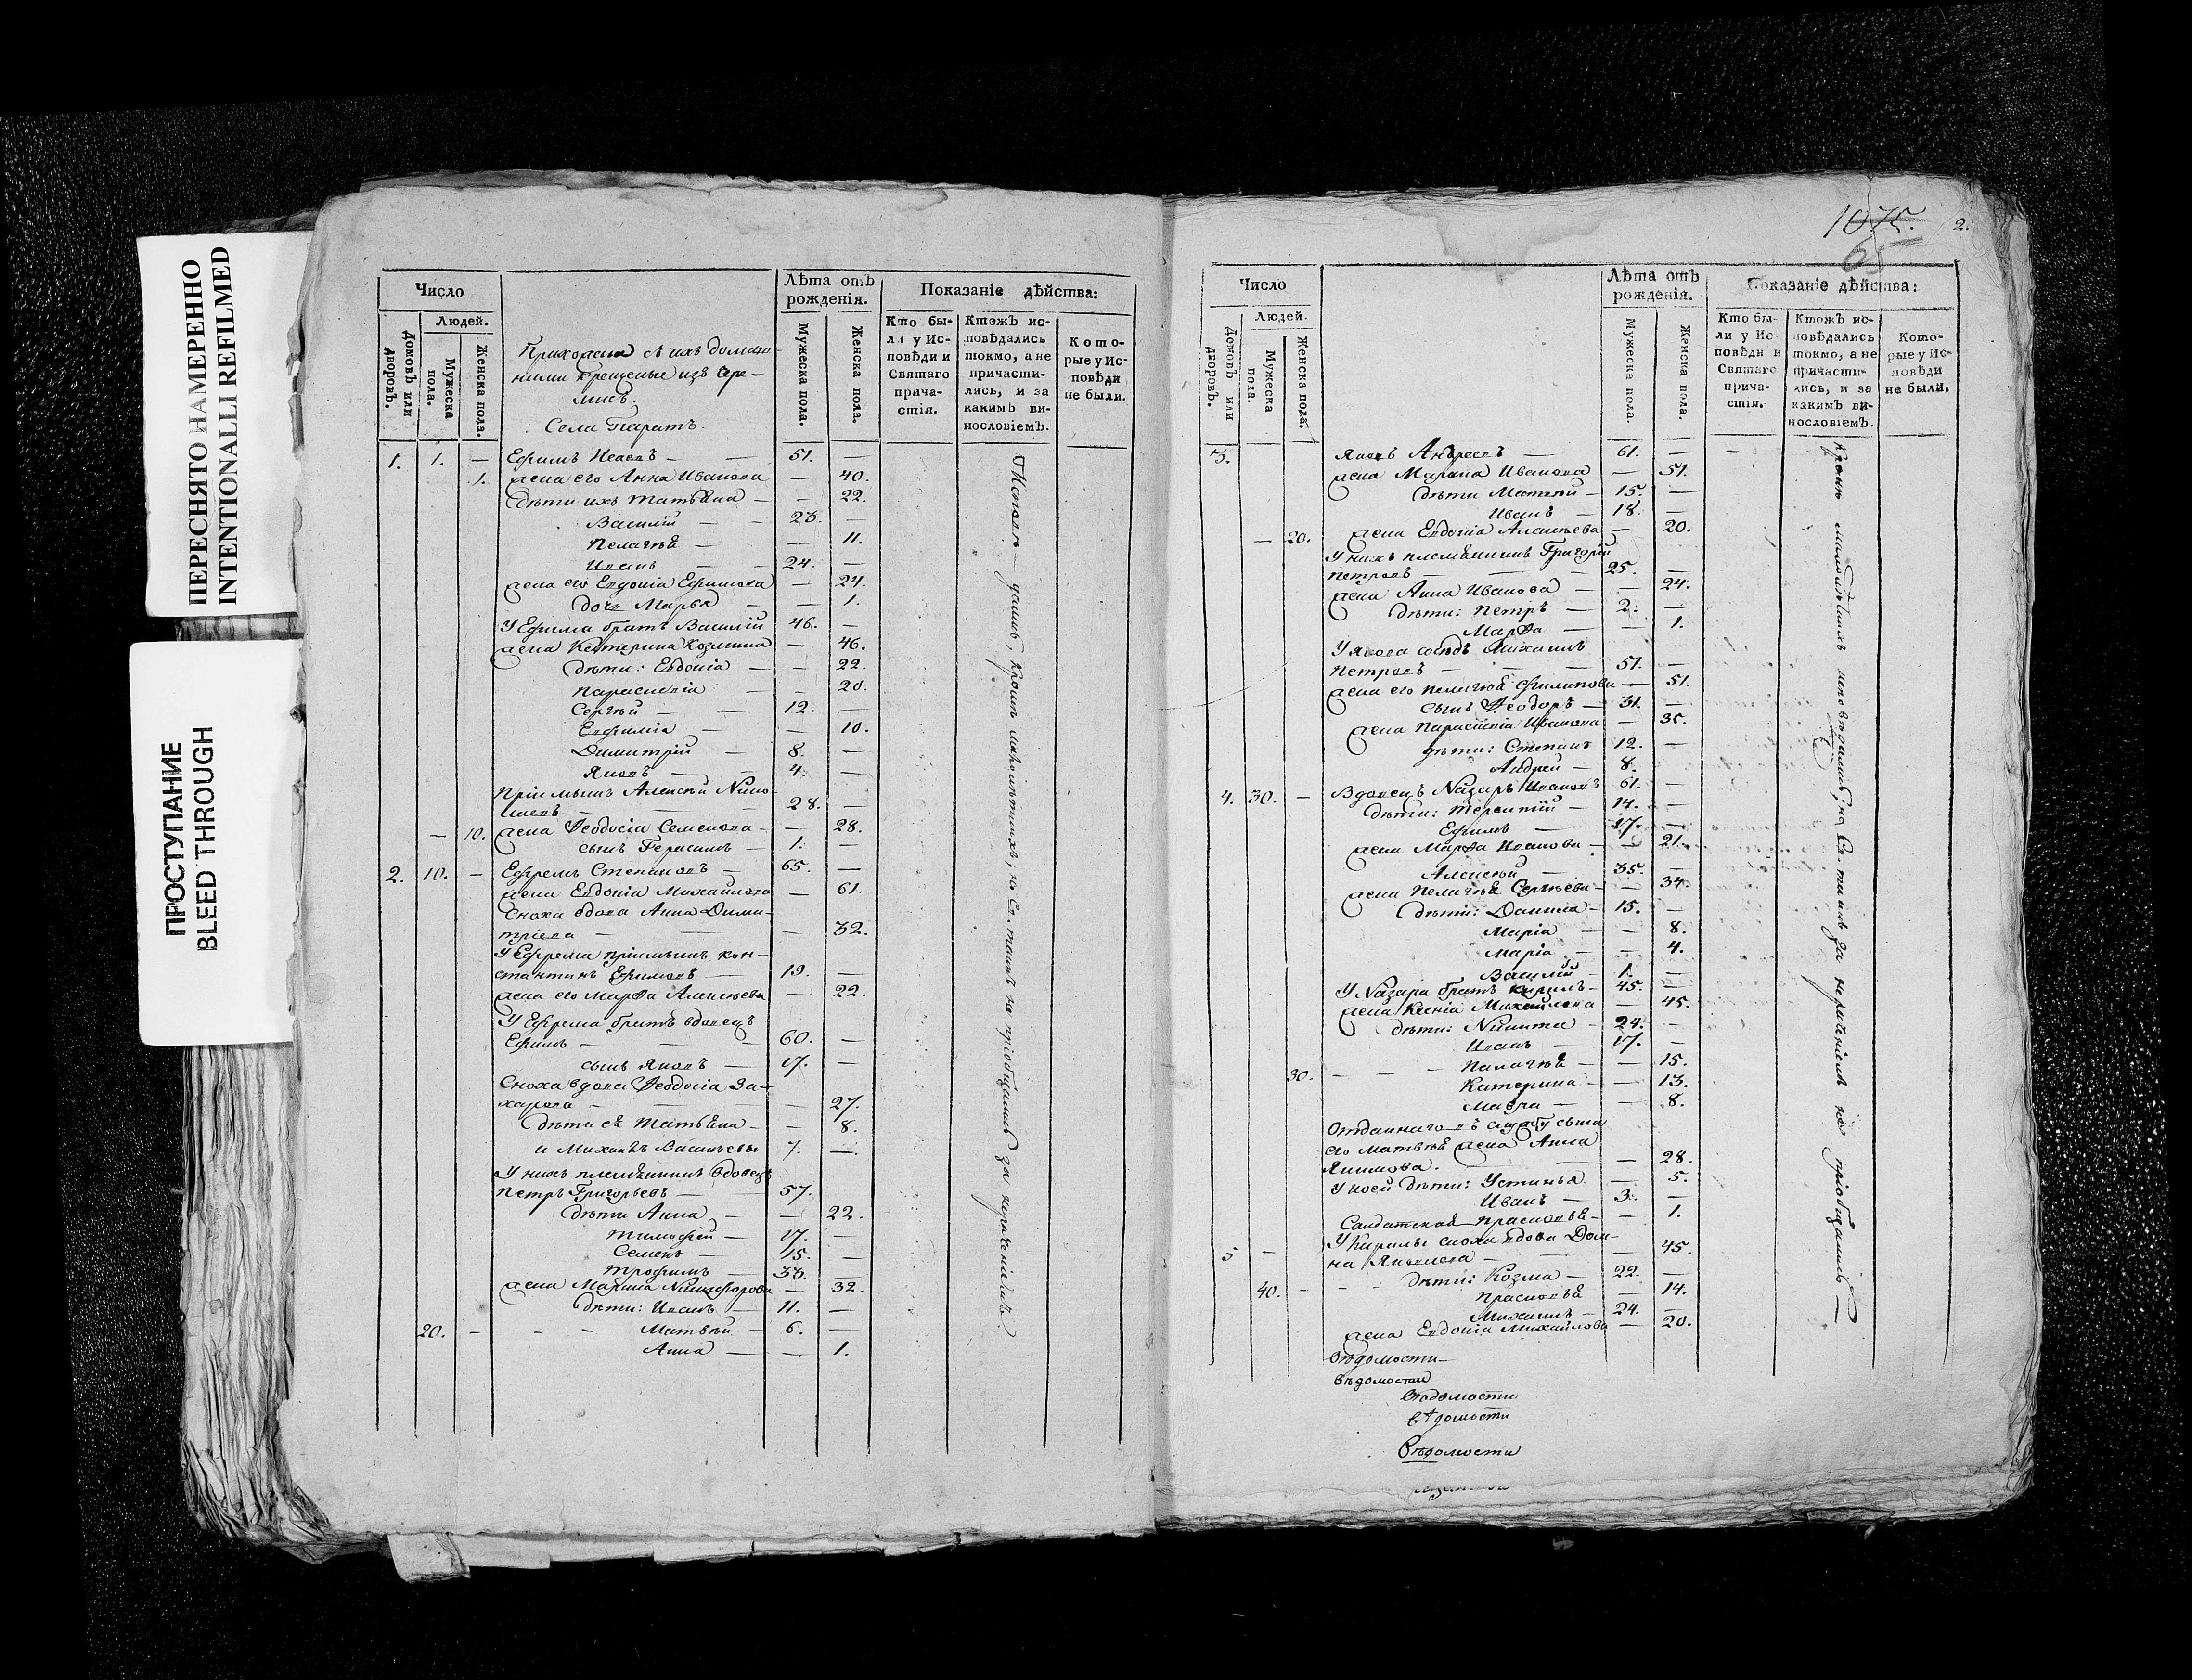 ПЕРЕСНЯТО НАМЕРЕННО
INTENTIONALLI REFILMED
ПРОСТУПАНИЕ
BLEED THROUGH
Число
Людей.
Домовъ или дворовъ.
Мужеска пола.
Женска пола.
Прихожане съ ихъ домаш-
ними крещеные изъ Чере-
мисъ.
Села Паратъ.
Лѣта отъ рожденія.
Мужеска пола.
Женска пола.
Показаніе дѣйства:
Кто бы-
ли у Ис-
повѣди и
Святаго
прича-
стія.
Ктожъ ис-
повѣдались
токмо, а не
причасти-
лись, и за
какимъ ви-
нословіемъ.
Кото-
рые у Ис-
повѣди
не были.
1. 1. — Ефимъ Исаевъ — 51. —
1. жена его Анна Иванова — 40.
дѣти ихъ Татьѣна — — 22.
Василій — 23. —
Пелагѣя — — 11.
Иванъ — 24. —
жена его Евдокіа Ефимова — 24.
дочь Марья — — 1.
У Ефима братъ Василій 46. —
жена Катерина Козмина — 46.
дѣти: Евдокіа — — 22.
Параскевіа — — 20.
Сергѣй — 12. —
Евфиміа — — 10.
Димитрій — 8. —
Яковъ — 4. —
Пріимышъ Алексѣй Ники-
28. —
— 10. жена Ѳеодосіа Семенова — — 28.
сынъ Герасимъ — 1. —
2. 10. — Ефремъ Степановъ — 65. —
жена Евдокіа Михайлова — 61.
Сноха вдова Анна Дими-
тріева — — 32.
У Ефрема пріимышъ Кон-
стантинъ Ефимовъ — 19. —
жена его Марѳа Алексѣева — 22.
У Ефрема братъ вдовецъ
Ефимъ — 60. —
сынъ Яковъ — 17. —
Сноха вдова Ѳеодосіа За-
харова — — 27.
дѣти еѣ Татьѣна — — 8.
и Михаилъ Васильевы 7. —
У нихъ племянникъ вдовецъ
Петръ Григорьевъ — 57. —
дѣти Анна — — 22.
Тимофей — 17. —
Семенъ — 15. —
Трофимъ — 33. —
жена Марина Никифорова — 32.
дѣти: Иванъ — 11. —
20. — — — Матвѣй — 6. —
Анна — — 1.
Исповѣданы, кромѣ малолѣтныхъ, но Св. таинъ не пріобщались за нерачені
1075.
65
2.
Число
Людей.
Домовъ или дворовъ.
Мужеска пола.
Женска пола.
Лѣта отъ рожденія.
Мужеска пола.
Женска пола.
Показаніе дѣйства:
Кто бы-
ли у Ис-
повѣди и
Святаго
прича-
стія.
Ктожъ ис-
повѣдались
токмо, а не
причасти-
лись, и за
какимъ ви-
нословіемъ.
Кото-
рые у Ис-
повѣди
не были.
3. Яковъ Андреевъ — 61. —
жена Марина Иванова — 51.
дѣти Матвѣй — 15. —
Иванъ — 18. —
— 20. жена Евдокіа Алексѣева — 20.
У нихъ племянникъ Григорій
Петровъ — 25. —
жена Анна Иванова — — 24.
дѣти: Петръ — 2. —
Марѳа — — 1.
У Якова сосѣдъ Михаилъ
Петровъ — 51. —
жена его Пелагѣя Филипова — 51.
сынъ Ѳеодоръ — 31. —
жена Параскевіа Иванова — 35.
дѣти: Степанъ 12. —
Андрей — 8. —
4. 30. — Вдовецъ Назаръ Ивановъ 61. —
дѣти: Терентій — 14. —
Ефимъ — 17. —
жена Марѳа Иванова — — 21.
Алексѣй — 35. —
жена Пелагѣя Сергѣева — — 34.
дѣти: Данила — 15. —
Маріа — — 8.
Маріа — — 4.
Василій — 1. —
У Назара братъ Кирилъ — 45. —
жена Ксеніа Михайлова — 45.
дѣти: Никита — 24. —
Иванъ — 17. —
30. — — — Палагѣя — — 15.
Катерина — — 13.
Мавра — — 8.
Отданнаго въ службу сына
его Матвѣя жена Анна
Якимова. — 28.
У коей дѣти: Устинья — 5.
Иванъ — 3. —
Салдатская Прасковья — — 1.
У Кирилы сноха вдова Дом-
5 — на Яковлева — — 45.
дѣти: Козма — 22. —
40. — — Прасковья — 14.
Михаилъ — 24. —
жена Евдокіа Михайлова — 20.
Кромѣ малолѣтныхъ исповѣданы, но Св. таинъ за нераченіемъ не пріобщались —
Вѣдомости
Вѣдомостии
Вѣдомости
Вѣдомости
Вѣдомости